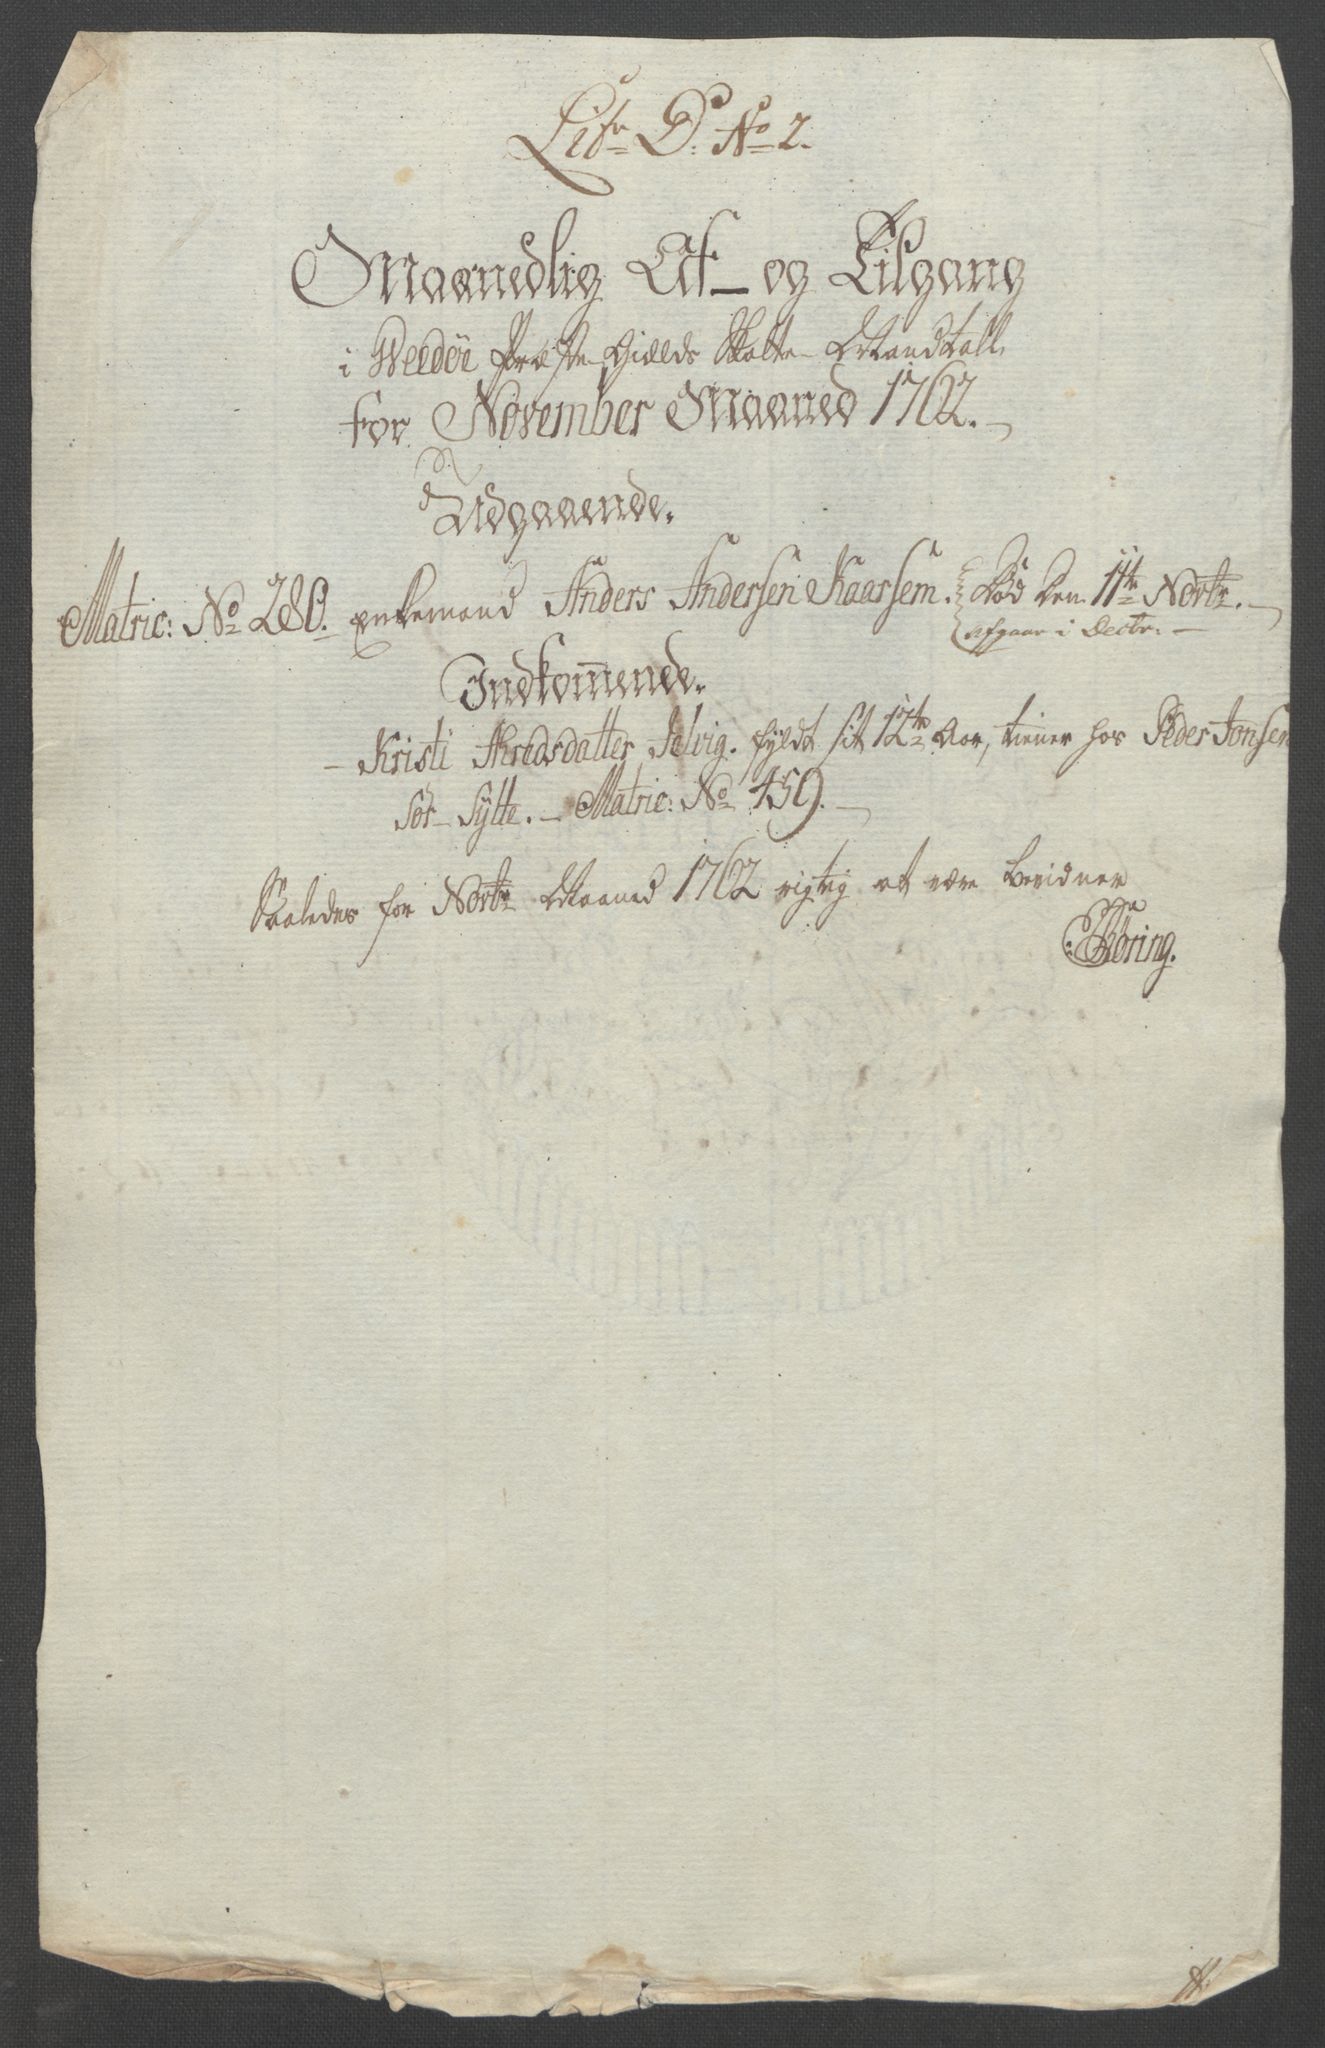 Litr D: No 2.
Maanedlig Af- og Tilgang
i Weedöe Præste-Gields Skatte-Mandtall
for November Maaned 1762.
Udgaaende.
Matric: No 280. enkemand Anders Andersen Kaarsem. Död den 11te Novbr.
afgaar i Decbr:
Indkommende.
- Kristi Knredsdatter Selvig. fyldt sit 12te Aar, tiener hos Peder Jonsen
Sör-Sylte. - Matric: No 459.
Saaledes for Novbr Maaned 1762 rigtig at være bevidner
Röring.